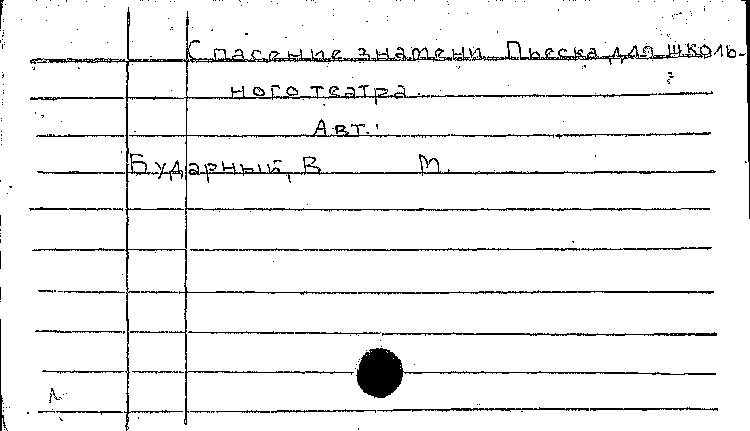 Спасение знамени. Пьеска для школь-
ного театра.
Авт.:
Бударный, В М.